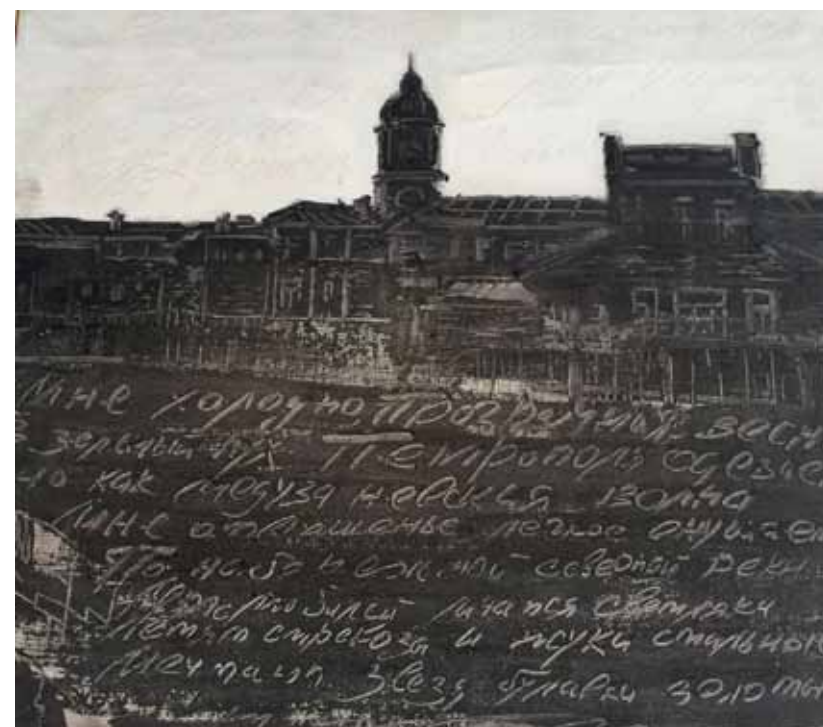 Мне холодно, Прозрачная весн
В зеленый пух Петрополь одевае
но как медуза невская волна
Мне отвращенье легкое внушае
По набережной северной реки
Автомобилей мчатся светляки
Летят стрекозы и жуки стальны
Мерцают звезд булавки золоты